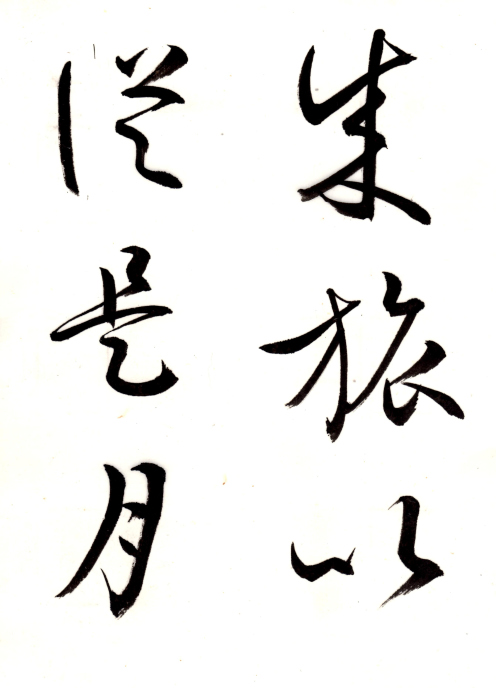 朱旅以
從是月